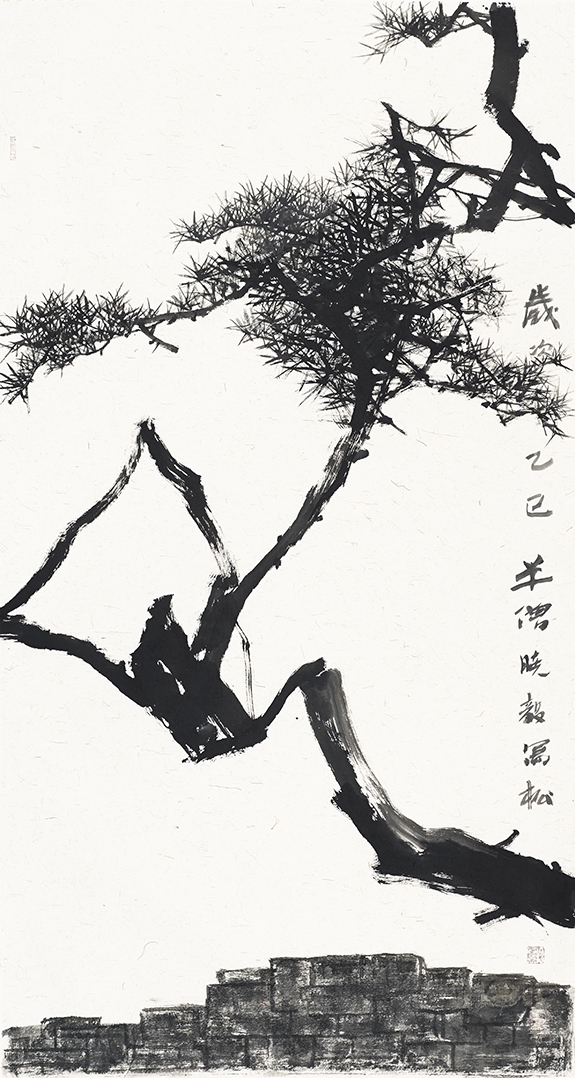 歲次乙巳 羊僧曉毅寫松